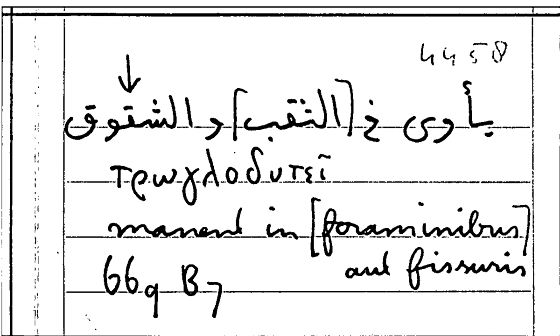 4458
يأوى في [الثقب] و الشقوق
τρωγλοδυτεῖ
manent in [foraminibus]
aut fissuris
66q B7